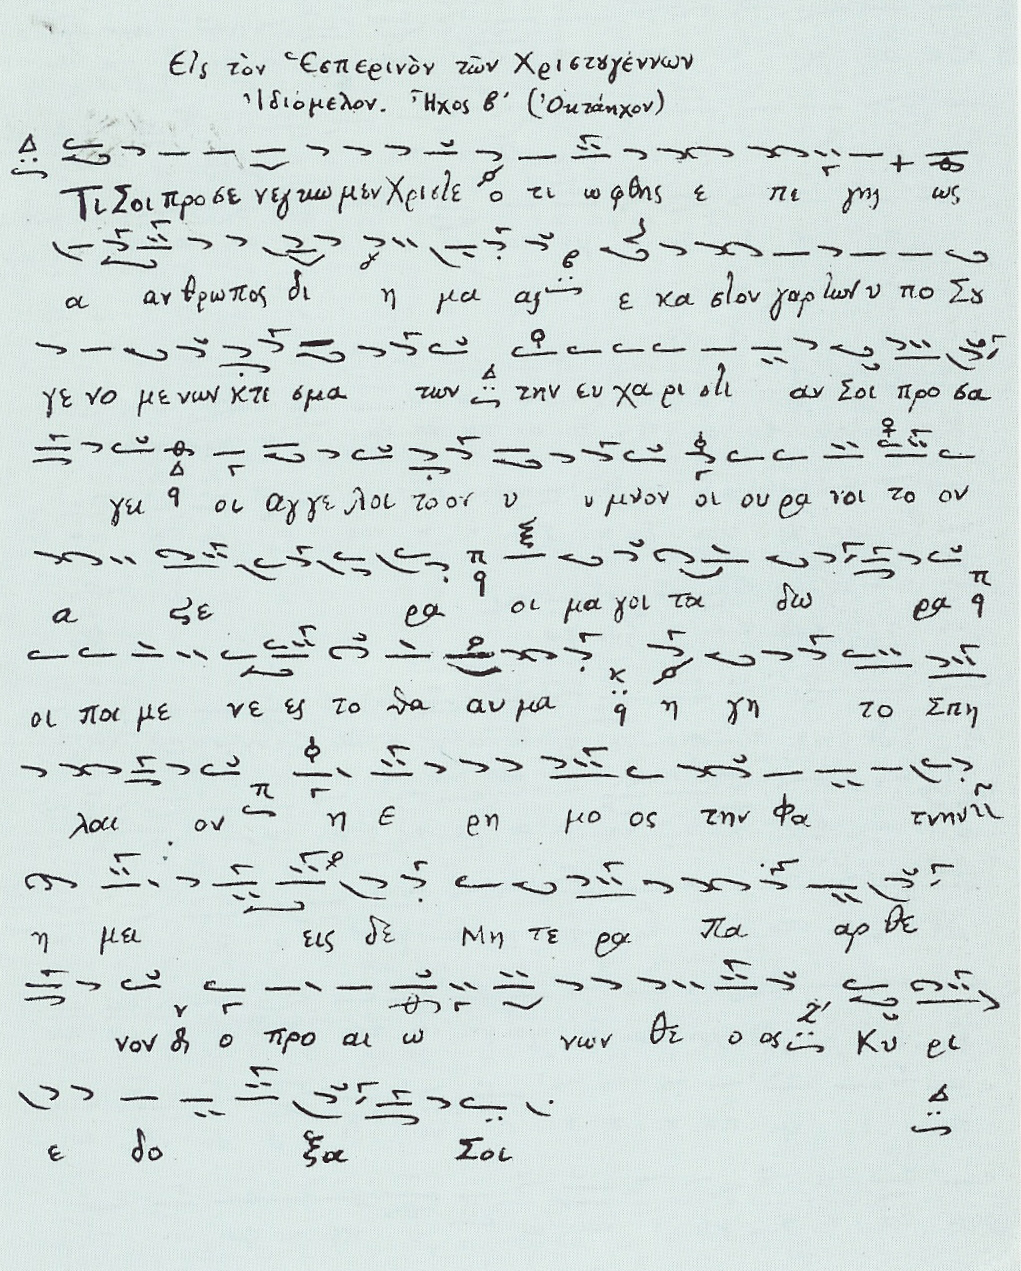 Εἰς τὸν Ἑσπερινὸν τῶν Χριστȣγέννων
Ἰδιόμελον. Ἦχος β' (Ὀκτάηχον)
Δ
Τι Σοι προσε νεγκωμεν Χριστε ο τι ωφθης ε πι γης ως
α ανθρωπος δι η μα ας ε κα στον γαρ των υ πο Σȣ
γε νο με νων κτι σμα των Δ την ευ χα ρι στι αν Σοι προ σα
γει Δ q οι αγγε λοι το ον υ υ μνον οι ου ρα νοι το ον
α ςε ρα π q οι μα γοι τα δω ρα π q
οι ποι με νε ες το θα αυ μα κ q η γη το Σπη
λαι ον π η ε ρη μο ος την φα τνην
η μει εις δε Μη τε ρα Πα αρ θε
νον δ ο προ αι ω νων θε ο ος Κυ ρι
ε δο ξα Σοι Δ